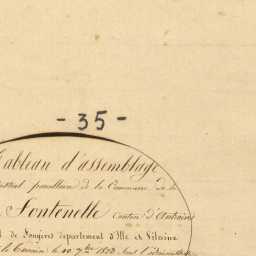 - 35 -
Tableau d'assemblage
parcellaire de la Commune de la
Fontenelle Canton d'Antrain
de Fougères département d'Ille et Vilaine
le Terrain le 10 7bre 1833 sous